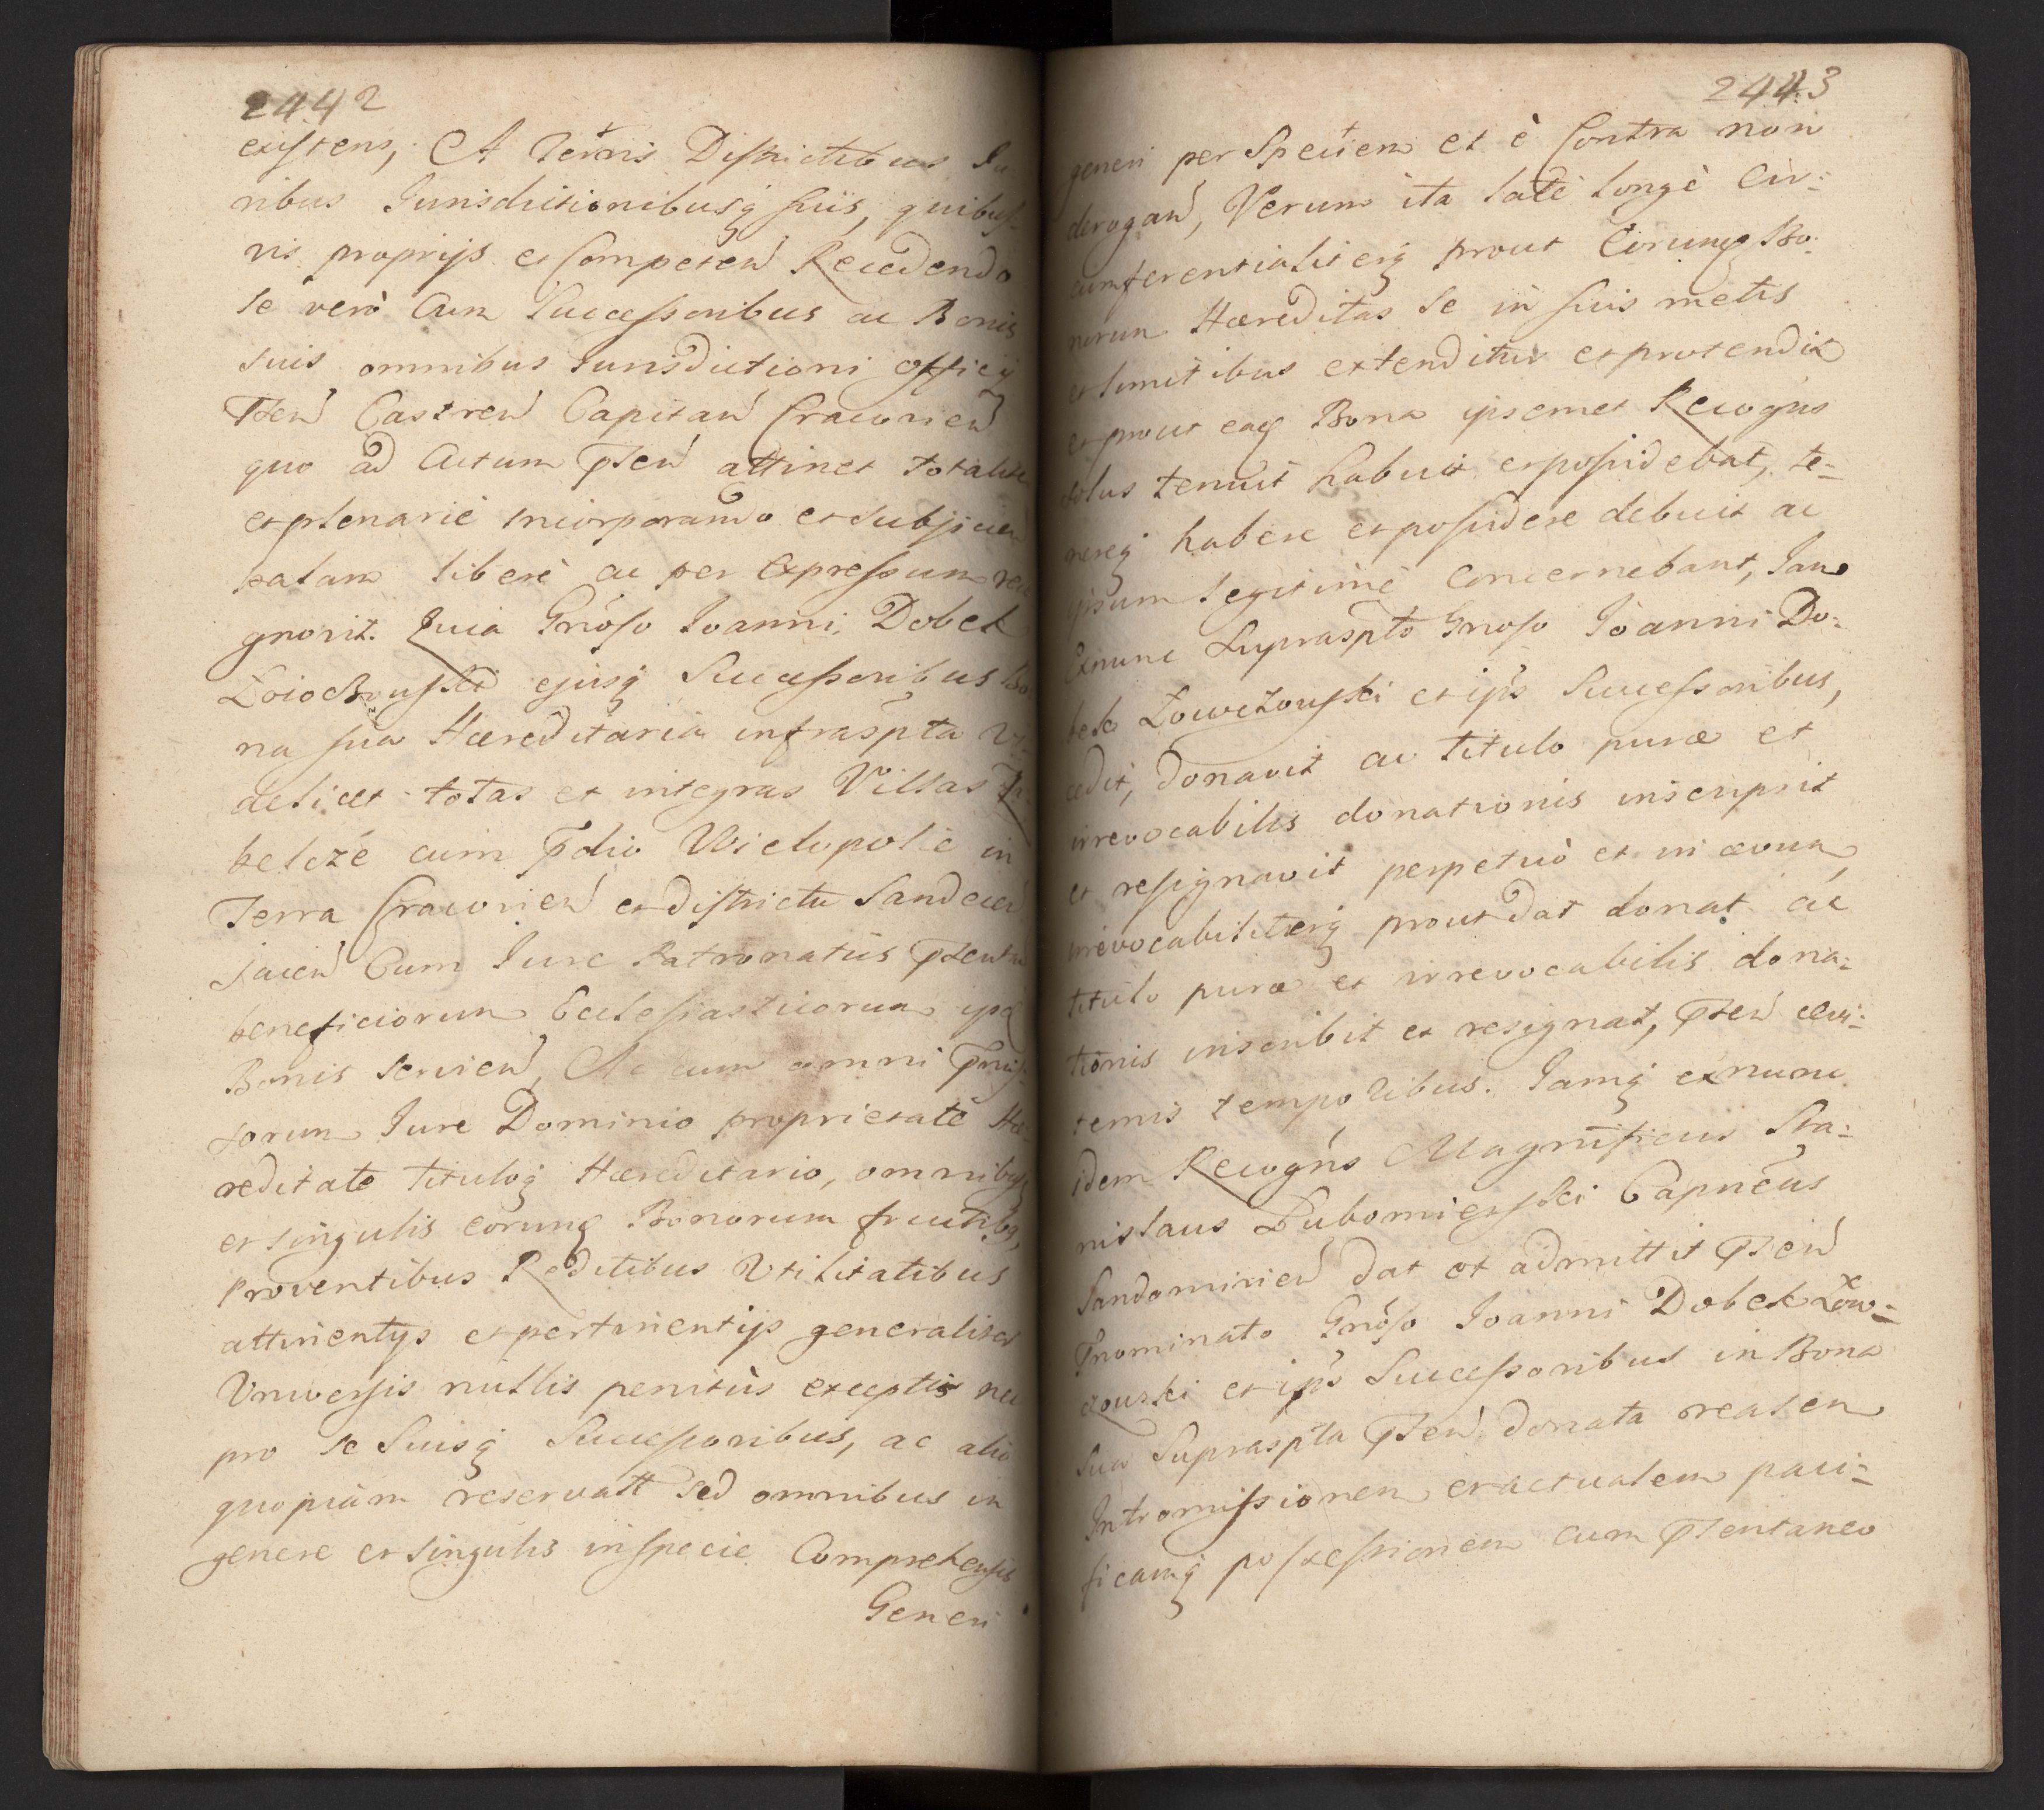 2442
existens, A Terris Districtibus Iu
ribus Iurisdictionibusq suis, quibus-
vis proprijs et Competen Recedendo
se verò cum Successoribus ac Bonis
suis omnibus Iurisdictioni Officij
Pten Castren Capitan Cracovien
quo ad Actum Pten attinet totalit
et plenariè incorporando et subjicien
palam liberè ac per Expressum rec
gnovit. Quia Gnõso Ioanni Dobek
ejusq Successoribus Bo
na sua Hæreditaria infraspta Vi-
delicet totas et integras Villas
cum Pdio Wielopole in
Terra Cracovien et districtu Sandecen
jacen Cum Iure Patronatûs
beneficiorum Ecclesiasticorum
Bonis servien, Ac cum omni
sorum Iure Dominio proprietate Hæ-
reditate tituloq Hæreditario, omnibq
et singulis eorumq Bonorum fructibq,
Proventibus Reditibus Utilitatibus
attinentijs et pertinentijs generaliter
Universis nullis penitùs exceptis nec
pro se Suisq Successoribus, ac alio
quopiàm reservatt sed omnibus in
genere et singulis in specie Comprehensis
Generi
2443
generi per Speciem et è Contra non
derogan, Verum ita latè longè Cir-
cumferentialiterq prout Eorumq Bo-
norum Hæreditas se in suis metis
et limitibus extenditur et protendit
et prout eaq Bona ipsemet Recogns
solus tenuit habuit et possidebat, te-
nereq habere et possidere debuit ac
ipsum legitimè concernebant, Iam
Exnunc Supraspto Gnoso Ioanni Do-
bek Łowczowski et ips Successoribus,
cedit, donavit ac titulo puræ et
irrevocabilis donationis inscripsit
et resignavit perpetuò et in ævum,
irrevocabiliterq prout dat donat ac
titulo puræ et irrevocabilis dona-
tionis inscribit et resignat, Pten ævi-
ternis temporibus. Iamq exnunc
idem Recogns Magnificus Sta-
nislaus Lubomierski Capneus
Sandomirien dat et admittit Pten
Pnominato Gnõso Ioanni Dobek Łow-
czowski et ips Successoribus in Bona
sua Supraspta Pten donata realem
Intromissionem et actualem paci-
ficamq possessionem cum Ptentaneo